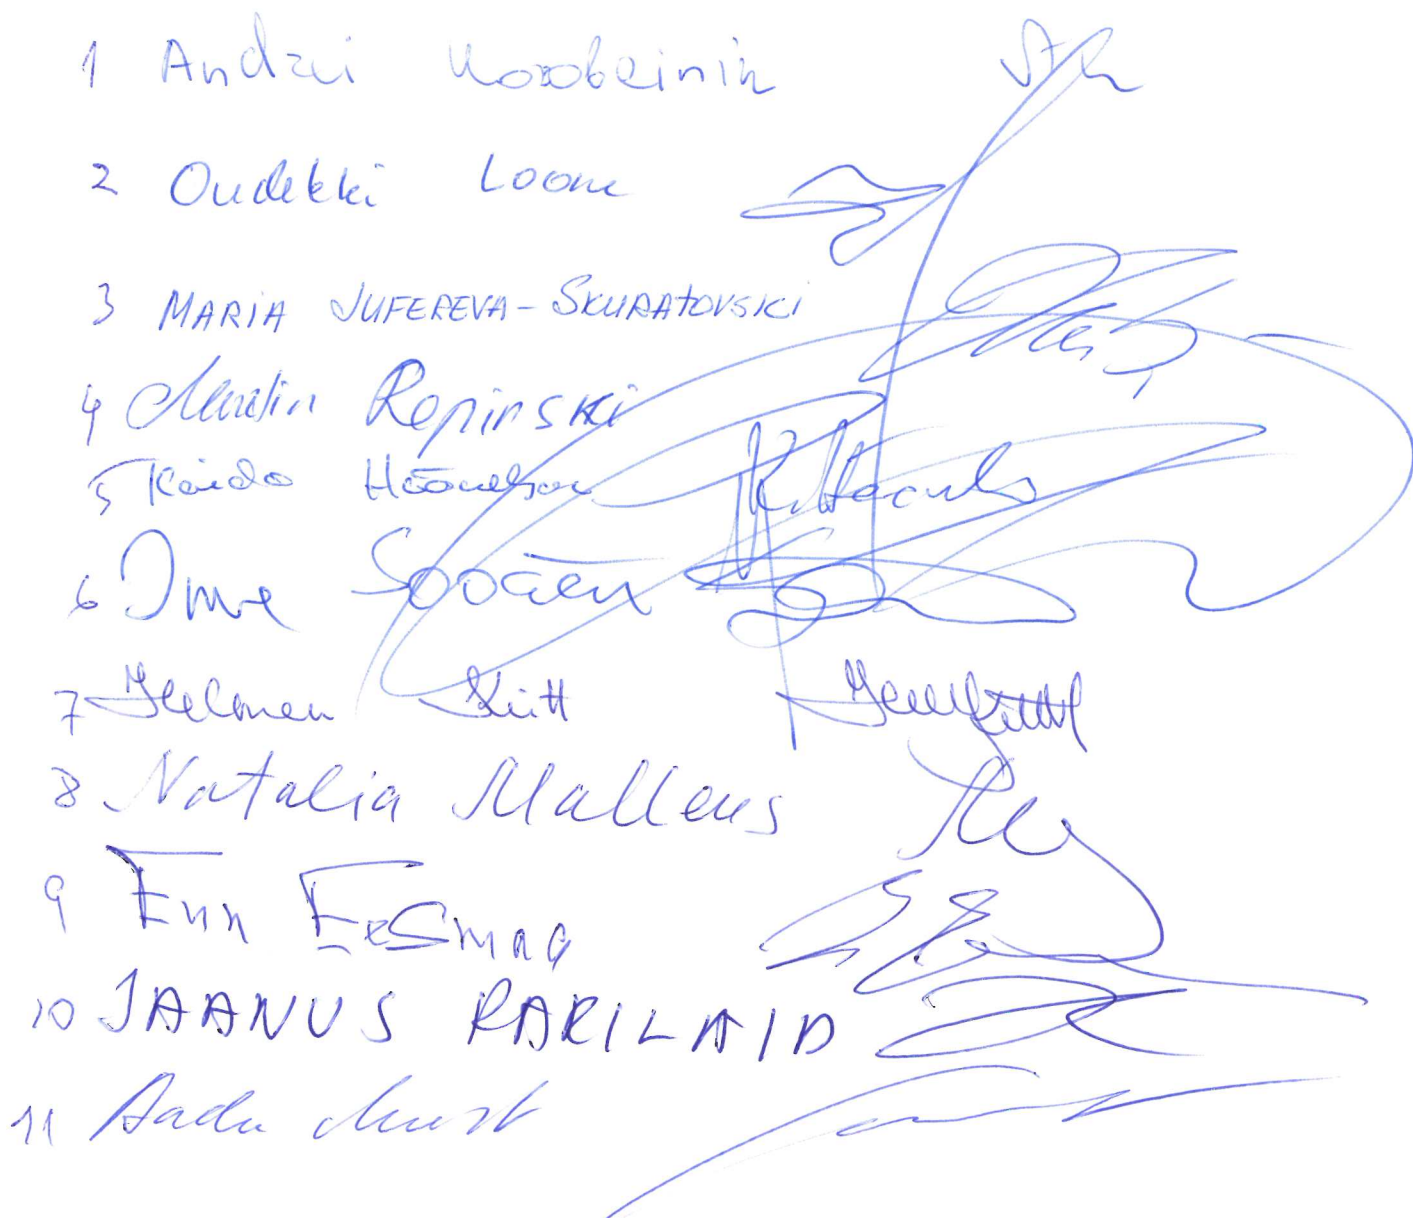 1 Andrei Korobeinik
2 Oudekki Loone
3 MARIA JUFEREVA-SKURATOVSKI
4 Martin Repinski
5 Kaido Höövelson
6 Imre Sooäär
7 Helmen Kütt
8 Natalia Malleus
9 Enn Eesmaa
10 JAANUS KARILAID
11 Aadu Must